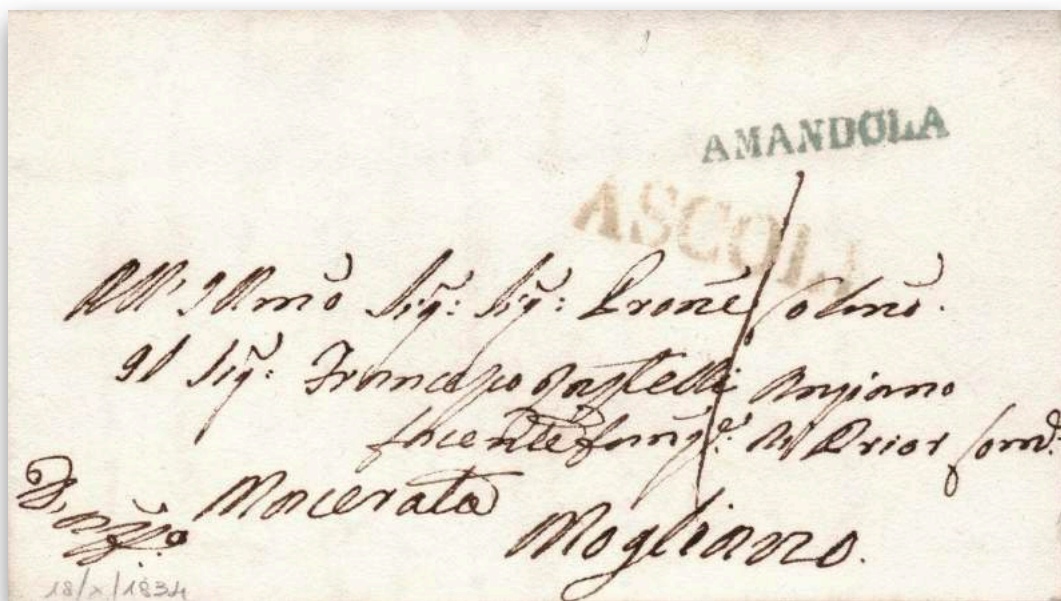 AMANDOLA
ASCOLI
All' Illmo Sig: Sig: Prone Colmo.
Il Sig: Francesco Anziano
facente funz: di Prior Com.
Macerata
Mogliano.
18/X/1834